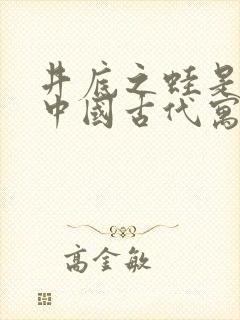 井底之蛙是
中國古代寓
高金敏